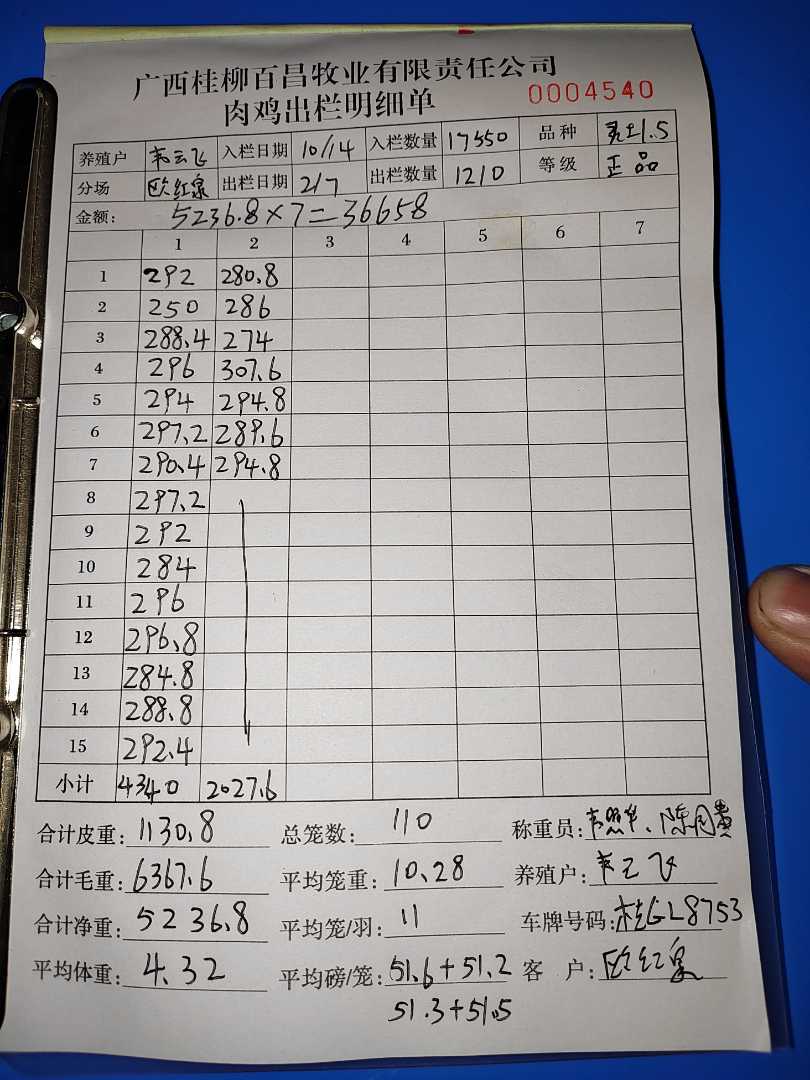 广西桂柳百昌牧业有限责任公司
肉鸡出栏明细单 0004540
养殖户 韦云飞 入栏日期 10/14 入栏数量 17550 品种 1.5
分场 欧红泉 出栏日期 2/7 出栏数量 1210 等级 正品
金额: 5236.8×7=36658
1 2 3 4 5 6 7
1 292 280.8
2 250 286
3 288.4 274
4 296 307.6
5 294 294.8
6 297.2 289.6
7 290.4 294.8
8 297.2
9 292
10 284
11 296
12 296.8
13 284.8
14 288.8
15 292.4
小计 4340 2027.6
合计皮重: 1130.8 总笼数: 110 称重员: 韦照华、陈国贵
合计毛重: 6367.6 平均笼重: 10.28 养殖户: 韦云飞
合计净重: 5236.8 平均笼/羽: 11 车牌号码: 桂GL8753
平均体重: 4.32 平均磅/笼: 51.6+51.2 客 户: 欧红泉
51.3+51.5